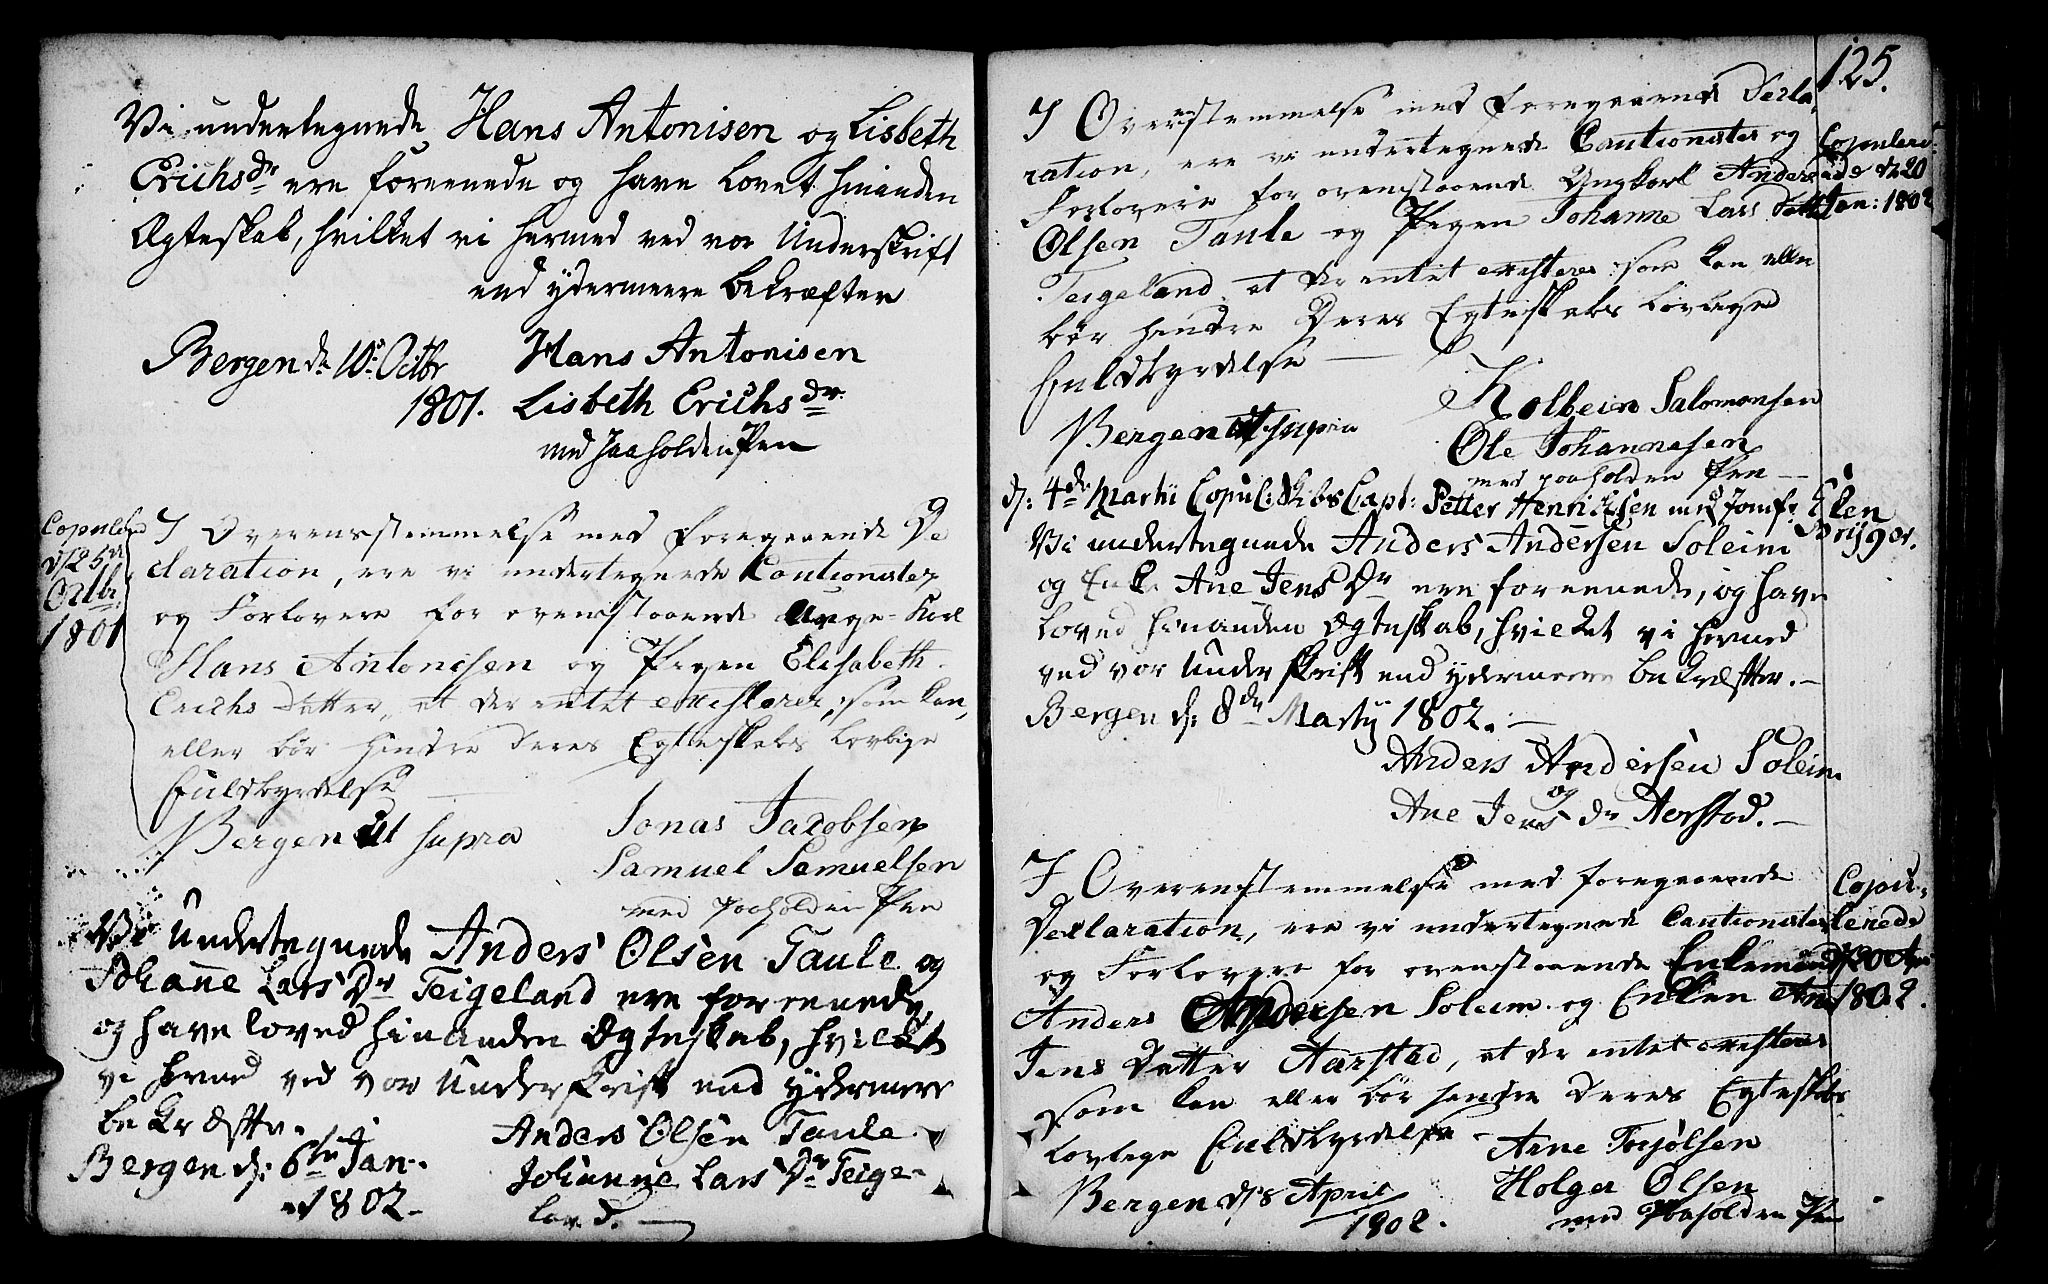 Vi undertegnede Hans Antonisen og Lisbeth
Erichsdr ere foreenede og have lovet hinanden
Ægteskab, hvilket vi hermed ved vor Underskrift
end ydermeere bekræfter
Bergen d. 10de Octbr
1801.
Hans Antonisen
Lisbeth Erichsdr
med paaholden Pen
Copulered
d. 25de
Octbr:
1801
I Overensstemmelse med foregaaende De
claration, ere vi undertegnede Cautionister
og Forlovere for ovenstaaende Unge-Karl
Hans Antonisen og Pigen Elisabeth
Erichs Datter, at der intet existerer, som kan,
eller bör hindre deres Egteskabs lovlige
Fuldbyrdelse
Bergen Ut supra
Jonas Jacobsen
Samuel Samuelsen
med paaholden Pen
Vi undertegnede Anders Olsen Taule og
Johanne Lars Dr Teigeland ere foreenede
og have loved hinanden Ægteskab, hvilket
vi hermed ved vor Underskrift end ydermere
bekræfter.
Bergen d: 6te Jan.
1802.
Anders Olsen Taule
Johanne Lars Dr Teige-
land.
125.
I Overrstemmelse med foregaaende Decla-
ration, ere vi undertegnede Cautionister og
Forlovere for ovenstaaende Ungkarl Anders
Olsen Taule og Pigen Johanne Lars Datter
Teigeland, at der intet existerer som kan eller
bör hindre deres Egteskabs lovlige
Fuldbyrdelse
Bergen Ut supra
Kolbein Salomonsen
Ole Johannesen
med paaholden Pen
Copulere-
de d. 20
Jan: 1802
d: 4de Martii Copul: Skibs Capt: Petter Henrichsen med Jomfr. Elen
Brijger.
Vi undertegnede Anders Andersen Soleim
og Enk. Ane Jens Dr ere foreenede, og have
loved hinanden Ægteskab, hvilket vi hermed
ved vor Underskrift end ydermeere bekræfter.
Bergen d: 8de Martij 1802.
Anders Andersen Soleim
og
Ane Jens Dr Aarstad.
I Overenstemmelse med foregaaende
Declaration, ere vi undertegnede Cautionister
og Forlovere for ovenstaaende Enkemand
Anders Andersen Soleim og Enken Ane
Jens Datter Aarstad, at der intet existerer
som kan eller bör hindre deres Egteskabs
lovlige Fuldbyrdelse
Bergen d. 8 April
1802.
Arne Torjölsen
Holger Olsen
med Paaholden Pen
Copu-
lerede
d. 20 Apr
1802.